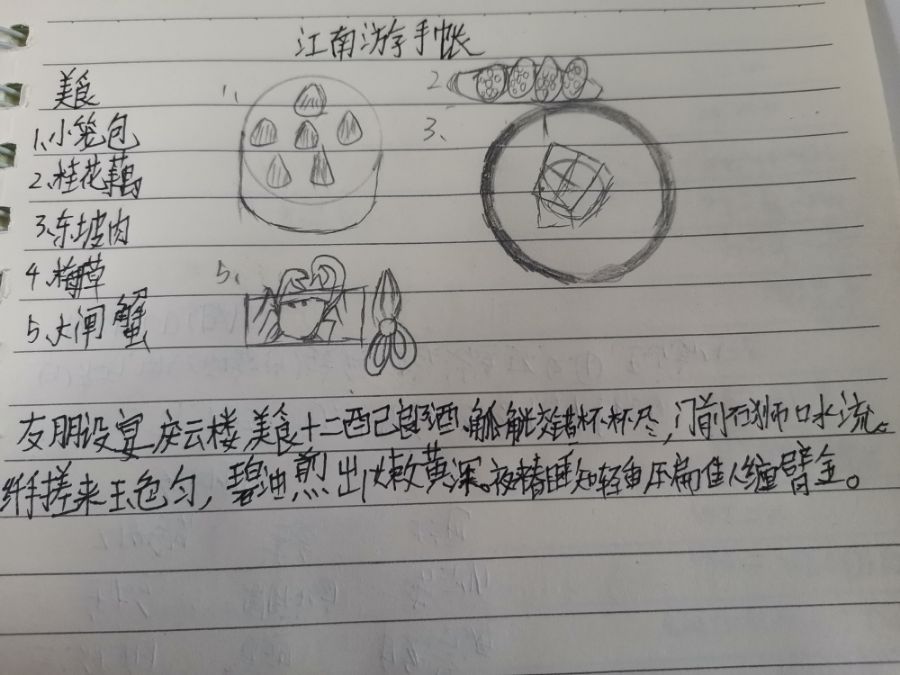 江南游手帐
美食
1、
2
1、小笼包
3、
2、桂花藕
3、东坡肉
4、梅
5、
5、大闸蟹
友朋设宴庆云楼,美食十二配郎酒、觥觥交错杯杯尽,门前石狮口水流。
纤手搓来玉色匀,碧油煎出嫩黄深。夜春睡知轻重压扁佳人缠臂金。